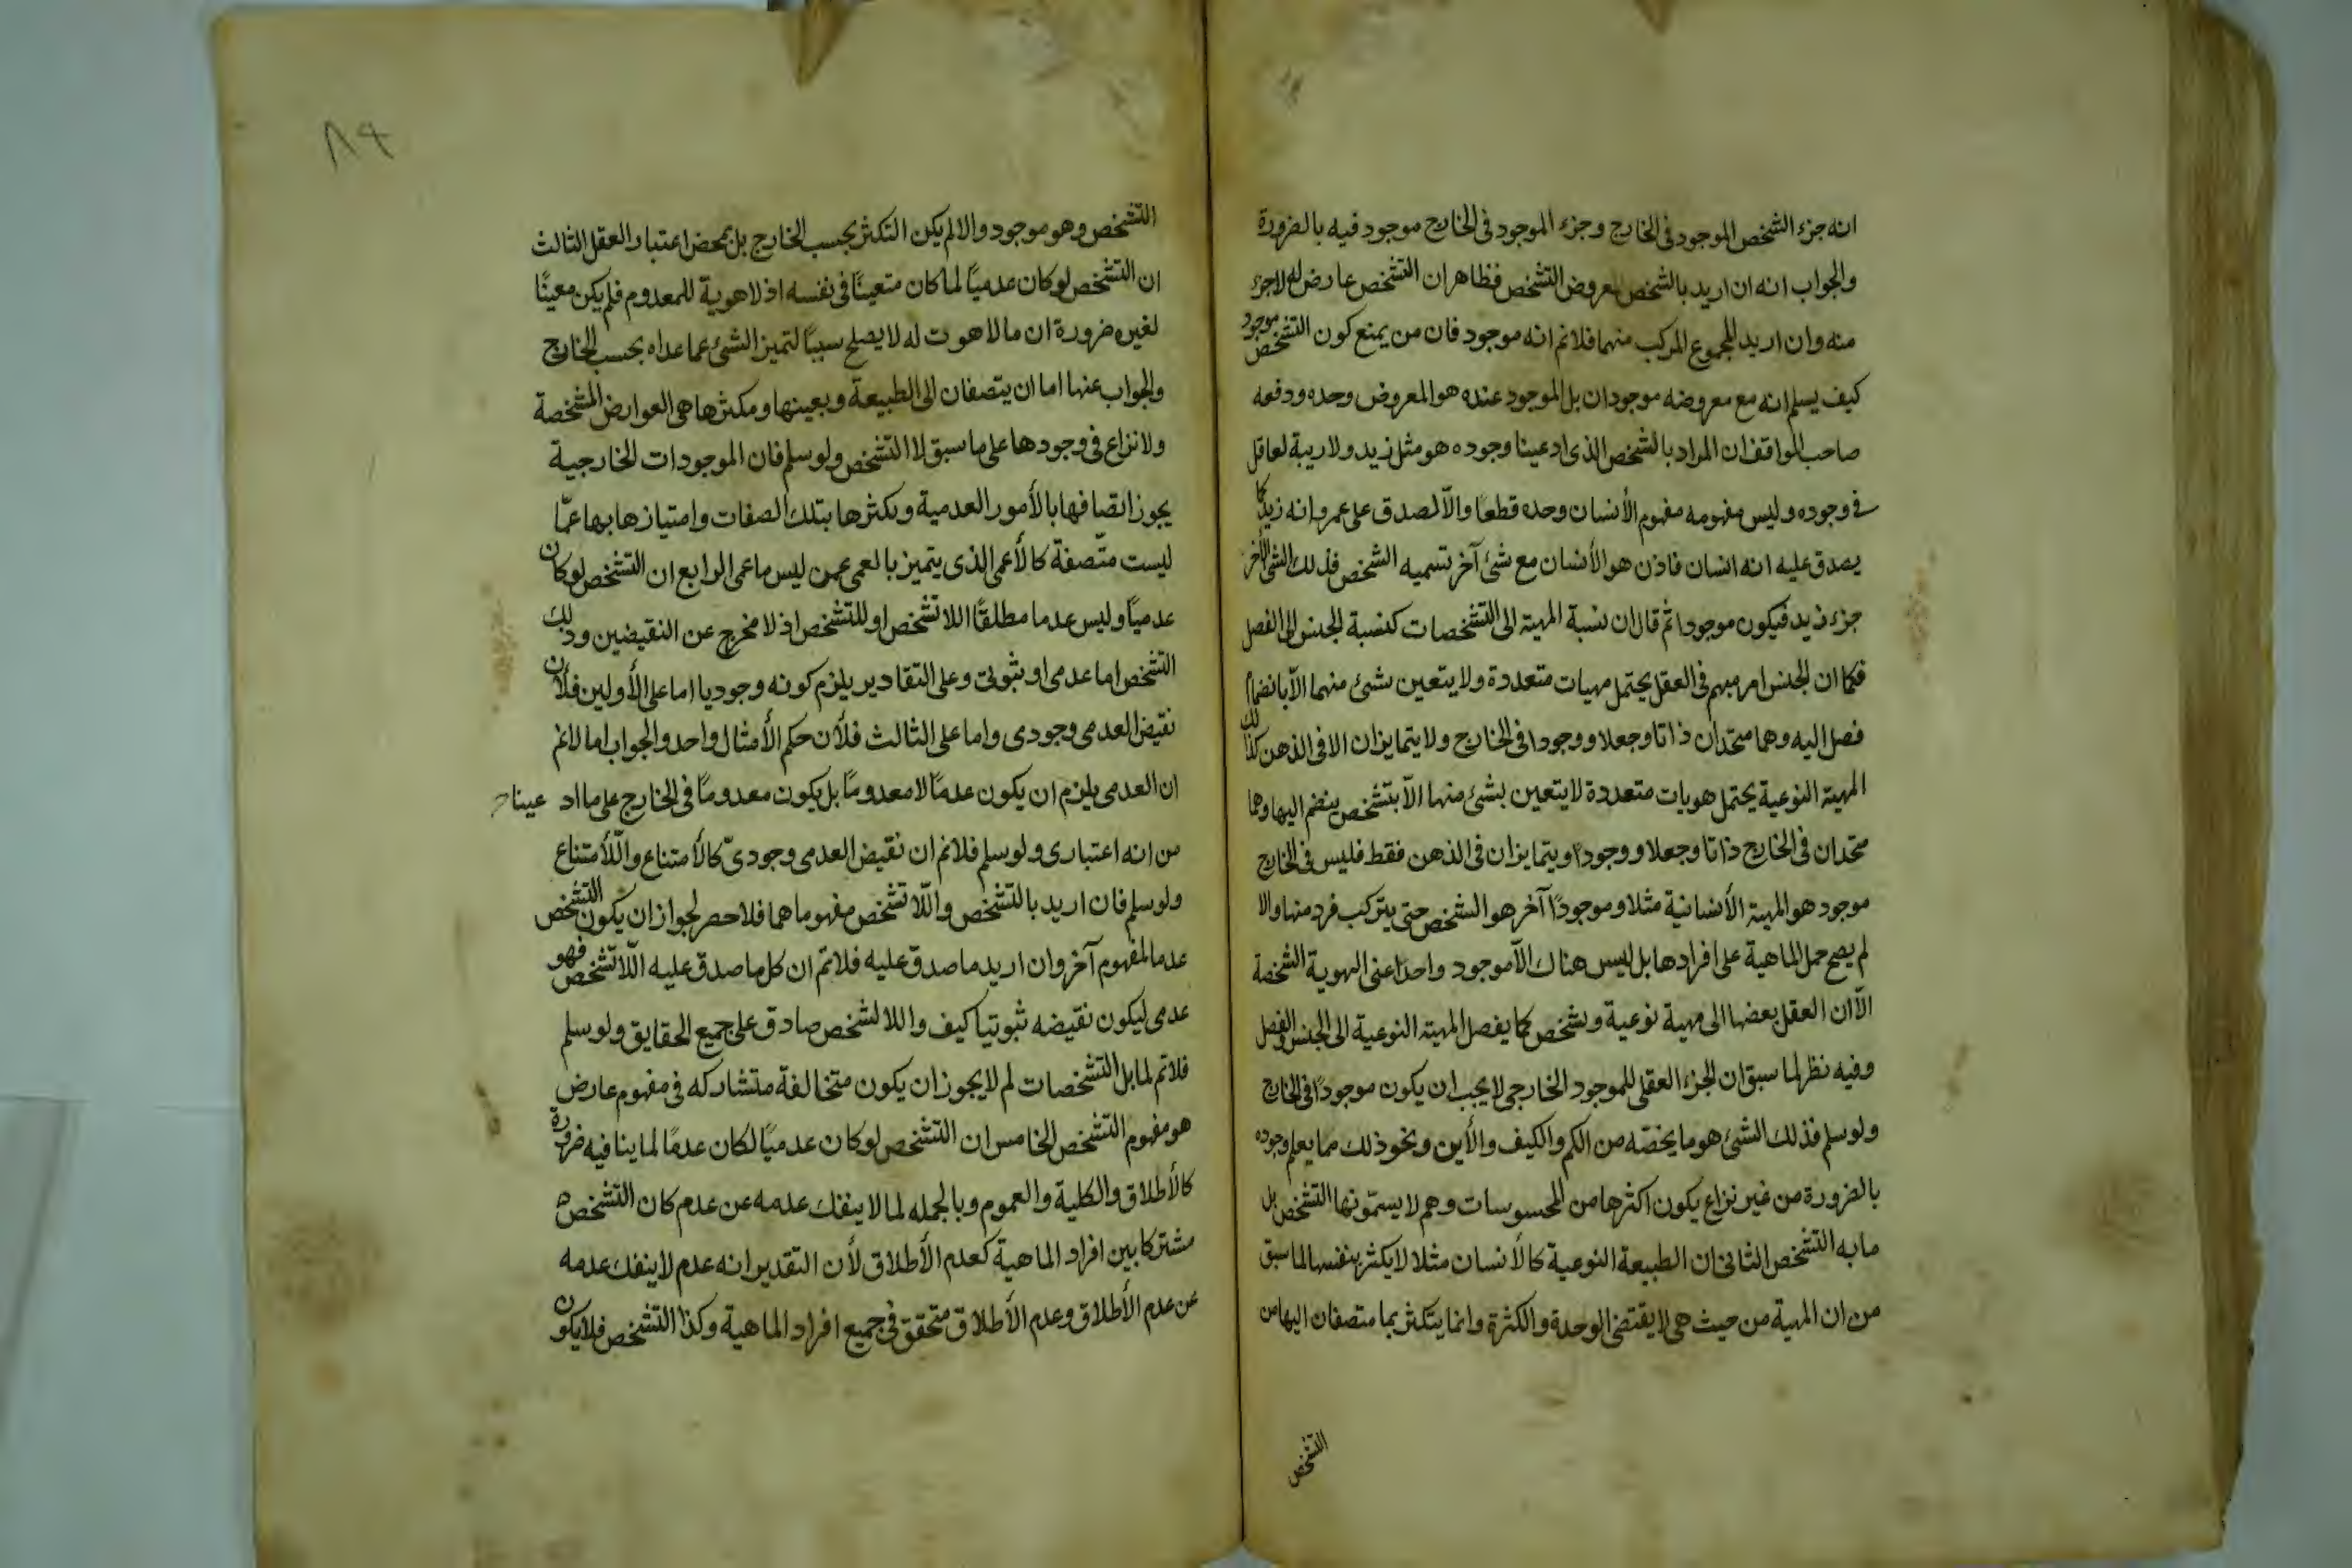 انه جزء الشخص الموجود فى الخارج وجزء الموجود فى الخارج موجود فيه بالضرورة
والجواب انه ان اريد بالشخص معروض التشخص فظاهر ان التشخص عارض له لا جزء
منه وان اريد المجموع المركب منهما فلانم انه موجود فان من يمنع كون التشخص موجود
كيف يسلم انه مع معروضه موجودان بل الموجود عنده هو المعروض وحده ودفعه
صاحب المواقف ان المراد بالشخص الذى ادعينا وجوده هو مثل زيد ولا ريبة لعاقل
فى وجوده وليس مفهومه مفهوم الأنسان وحده قطعًا والّا لصدق على عمرو انه زيد كا
يصدق عليه انه انسان فاذن هو الأنسان مع شئ آخر تسميه الشخص فذلك الشئ الآخر
جزء زيد فيكون موجودا ثم قال ان نسبة المهية الى التشخصات كنسبة الجنس الى الفصل
فكما ان الجنس امر مبهم فى العقل يحتمل مهيات متعددة ولا يتعين بشئ منهما الّا بانضمام
فصل اليه وهما متحدان ذاتا وجعلا ووجودا فى الخارج ولا يتمايزان الا فى الذهن كذلك
المهية النوعية يحتمل هويات متعددة لا يتعين بشئ منها الّا بتشخص ينضم اليها وهما
متحدان فى الخارج ذاتا وجعلا ووجودا ويتمايزان فى الذهن فقط فليس فى الخارج
موجود هو المهية الأنسانية مثلا وموجودًا آخر هو الشخص حتى يتركب فرد منها والا
لم يصح حمل الماهية على افرادها بل ليس هناك الّا موجود واحدا عنى الهوية الشخصة
الّا ان العقل بعضها الى مهية نوعية وتشخص كما يفصل المهية النوعية الى الجنس والفصل
وفيه نظر لما سبق ان الجزء العقلى للموجود الخارجى لا يجب ان يكون موجودًا فى الخارج
ولو سلم فذلك الشئ هو ما يخصّه من الكم والكيف والأين ونحو ذلك مما يعلم وجوده
بالضرورة من غير نزاع يكون اكثرها من المحسوسات وهم لا يسمّونها التشخص بل
ما به التشخص الثانى ان الطبيعة النوعية كالأنسان مثلا لا يكثر بنفسها لما سبق
من ان المهية من حيث هى لا يقتضى الوحدة والكثرة وانما يتكثر بما متصفان اليها من
التشخص
٨٩
التشخص وهو موجود والا لم يكن التكثر بحسب الخارج بل بمحض اعتبار العقل الثالث
ان التشخص لو كان عدميًا لما كان متعينًا فى نفسه اذ لا هوية للمعدوم فلم يكن معينًا
لغيره ضرورة ان ما لا هوت له لا يصلح سببًا لتميز الشئ عما عداه بحسب الخارج
والجواب عنها اما ان يتصفان الى الطبيعة وبعينها ومكثرها هى العوارض المشخصة
ولا نزاع فى وجودها على ما سبق لا التشخص ولو سلم فان الموجودات الخارجية
يجوز اتصافها بالأمور العدمية وتكثرها بتلك الصفات وامتيازها بها عمّا
ليست متّصفة كالأعمى الذى يتميز بالعمى عمن ليس ماعمى الرابع ان التشخص لو كان
عدميًا وليس عدما مطلقًا اللا تشخص او للتشخص اذ لا مخرج عن النقيضين وذلك
التشخص اما عدمى او ثبوتى وعلى التقادير يلزم كونه وجوديا اما على الأولين فلأن
نقيض العدمى وجودى واما على الثالث فلأن حكم الأمثال واحد والجواب اما لانم
ان العدمى يلزم ان يكون عدمًا لا معدومًا بل يكون معدومًا فى الخارج على ما اد عينا
من انه اعتبارى ولو سلم فلانم ان نقيض العدمى وجودىّ كالأمتناع واللّا أمتناع
ولو سلم فان اريد بالتشخص واللّا تشخص مفهوماهما فلا حصر لجواز ان يكون التشخص
عدما لمفهوم آخر وان اريد ما صدق عليه فلانم ان كل ما صدق عليه اللّا تشخص فهو
عدمى ليكون نقيضه ثبوتيا كيف واللا تشخص صادق على جميع الحقايق ولو سلم
فلانم لمابل التشخصات لم لا يجوز ان يكون متخالفة متشاركه فى مفهوم عارض
هو مفهوم التشخص الخامس ان التشخص لو كان عدميًا لكان عدمًا لما ينافيه ضرورة
كالأطلاق والكلية والعموم وبالجمله لما لا ينفك عدمه عن عدم كان التشخص
مشتركا بين افراد الماهية كعدم الأطلاق لأن التقدير انه عدم لا ينفك عدمه
عن عدم الأطلاق وعدم الأطلاق متحقق فى جميع افراد الماهية وكذا التشخص فلا يكون